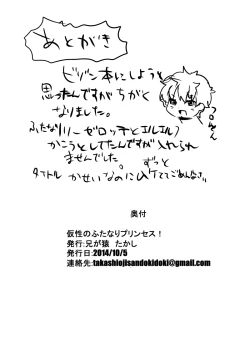 あとがき
ビリン本にしようと
思ったんですがちがく
なりました。
ふたなりリーゼロッテとエルエルフ
かこうとしてたんですが入れられ
ませんでした。ずっと
タイトル かせいなのに
奥付
仮性のふたなりプリンセス！
発行:兄が猿　たかし
発行日:2014/10/5
連絡先:takashiojisandokidoki@gmail.com